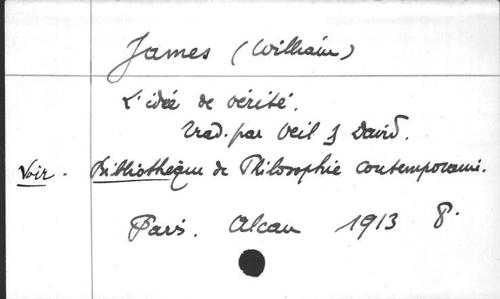 James (William)
L'idée de vérité.
Trad. par Veil & David.
Voir. Bibliothèque de Philosophie contemporaine.
Paris. Alcan 1913 8°.